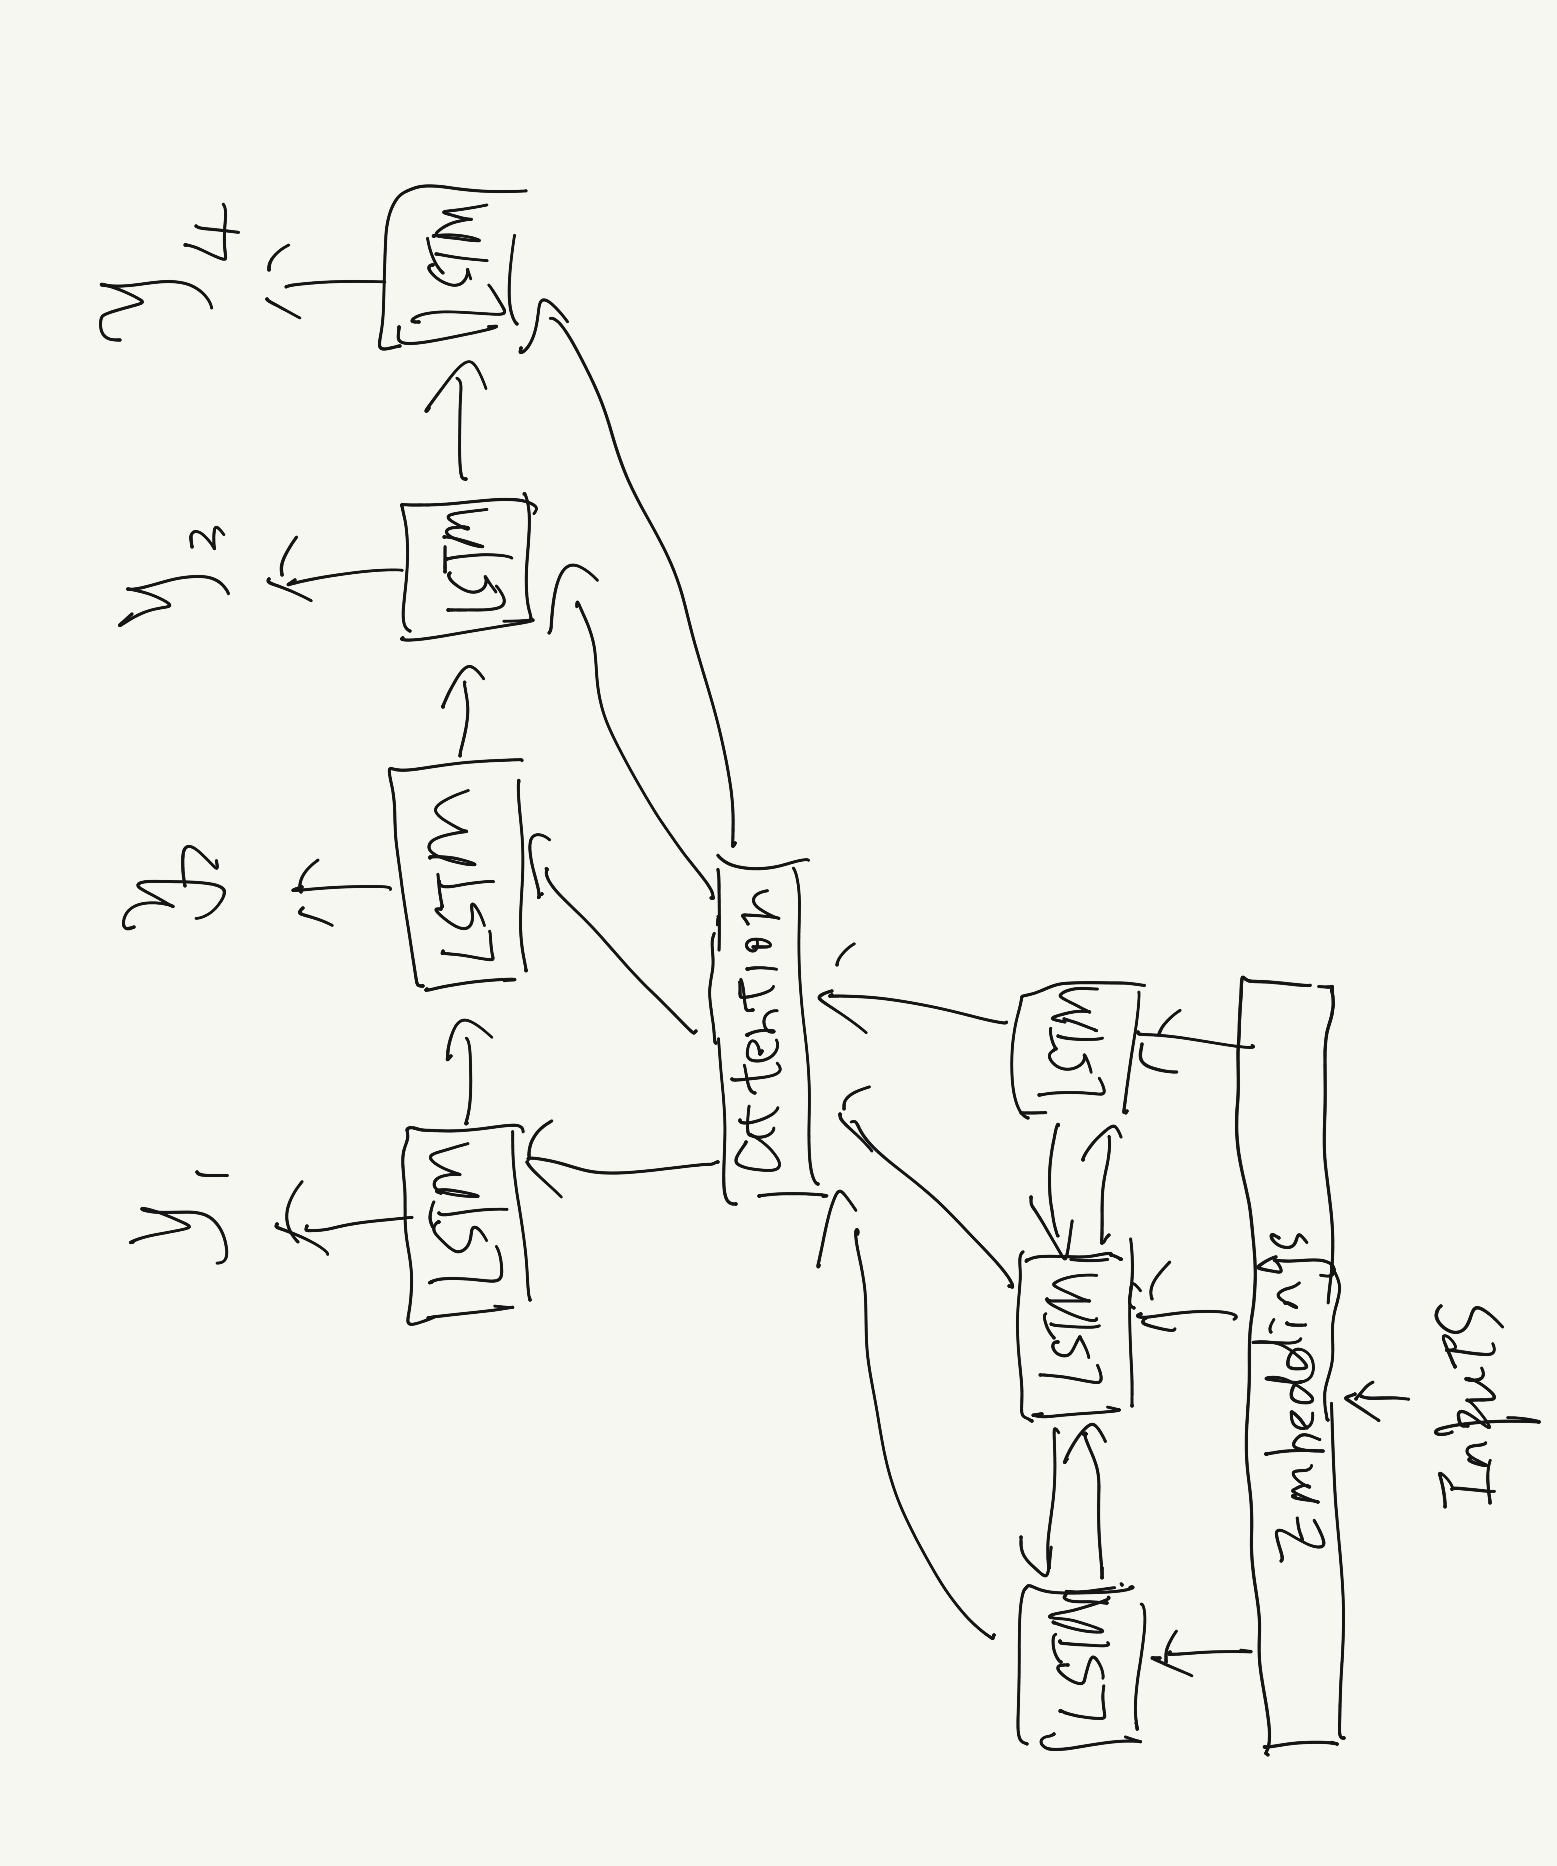 y1 y2 y3 y4
LSTM LSTM LSTM LSTM
attention
LSTM LSTM LSTM
Embeddings
Inputs